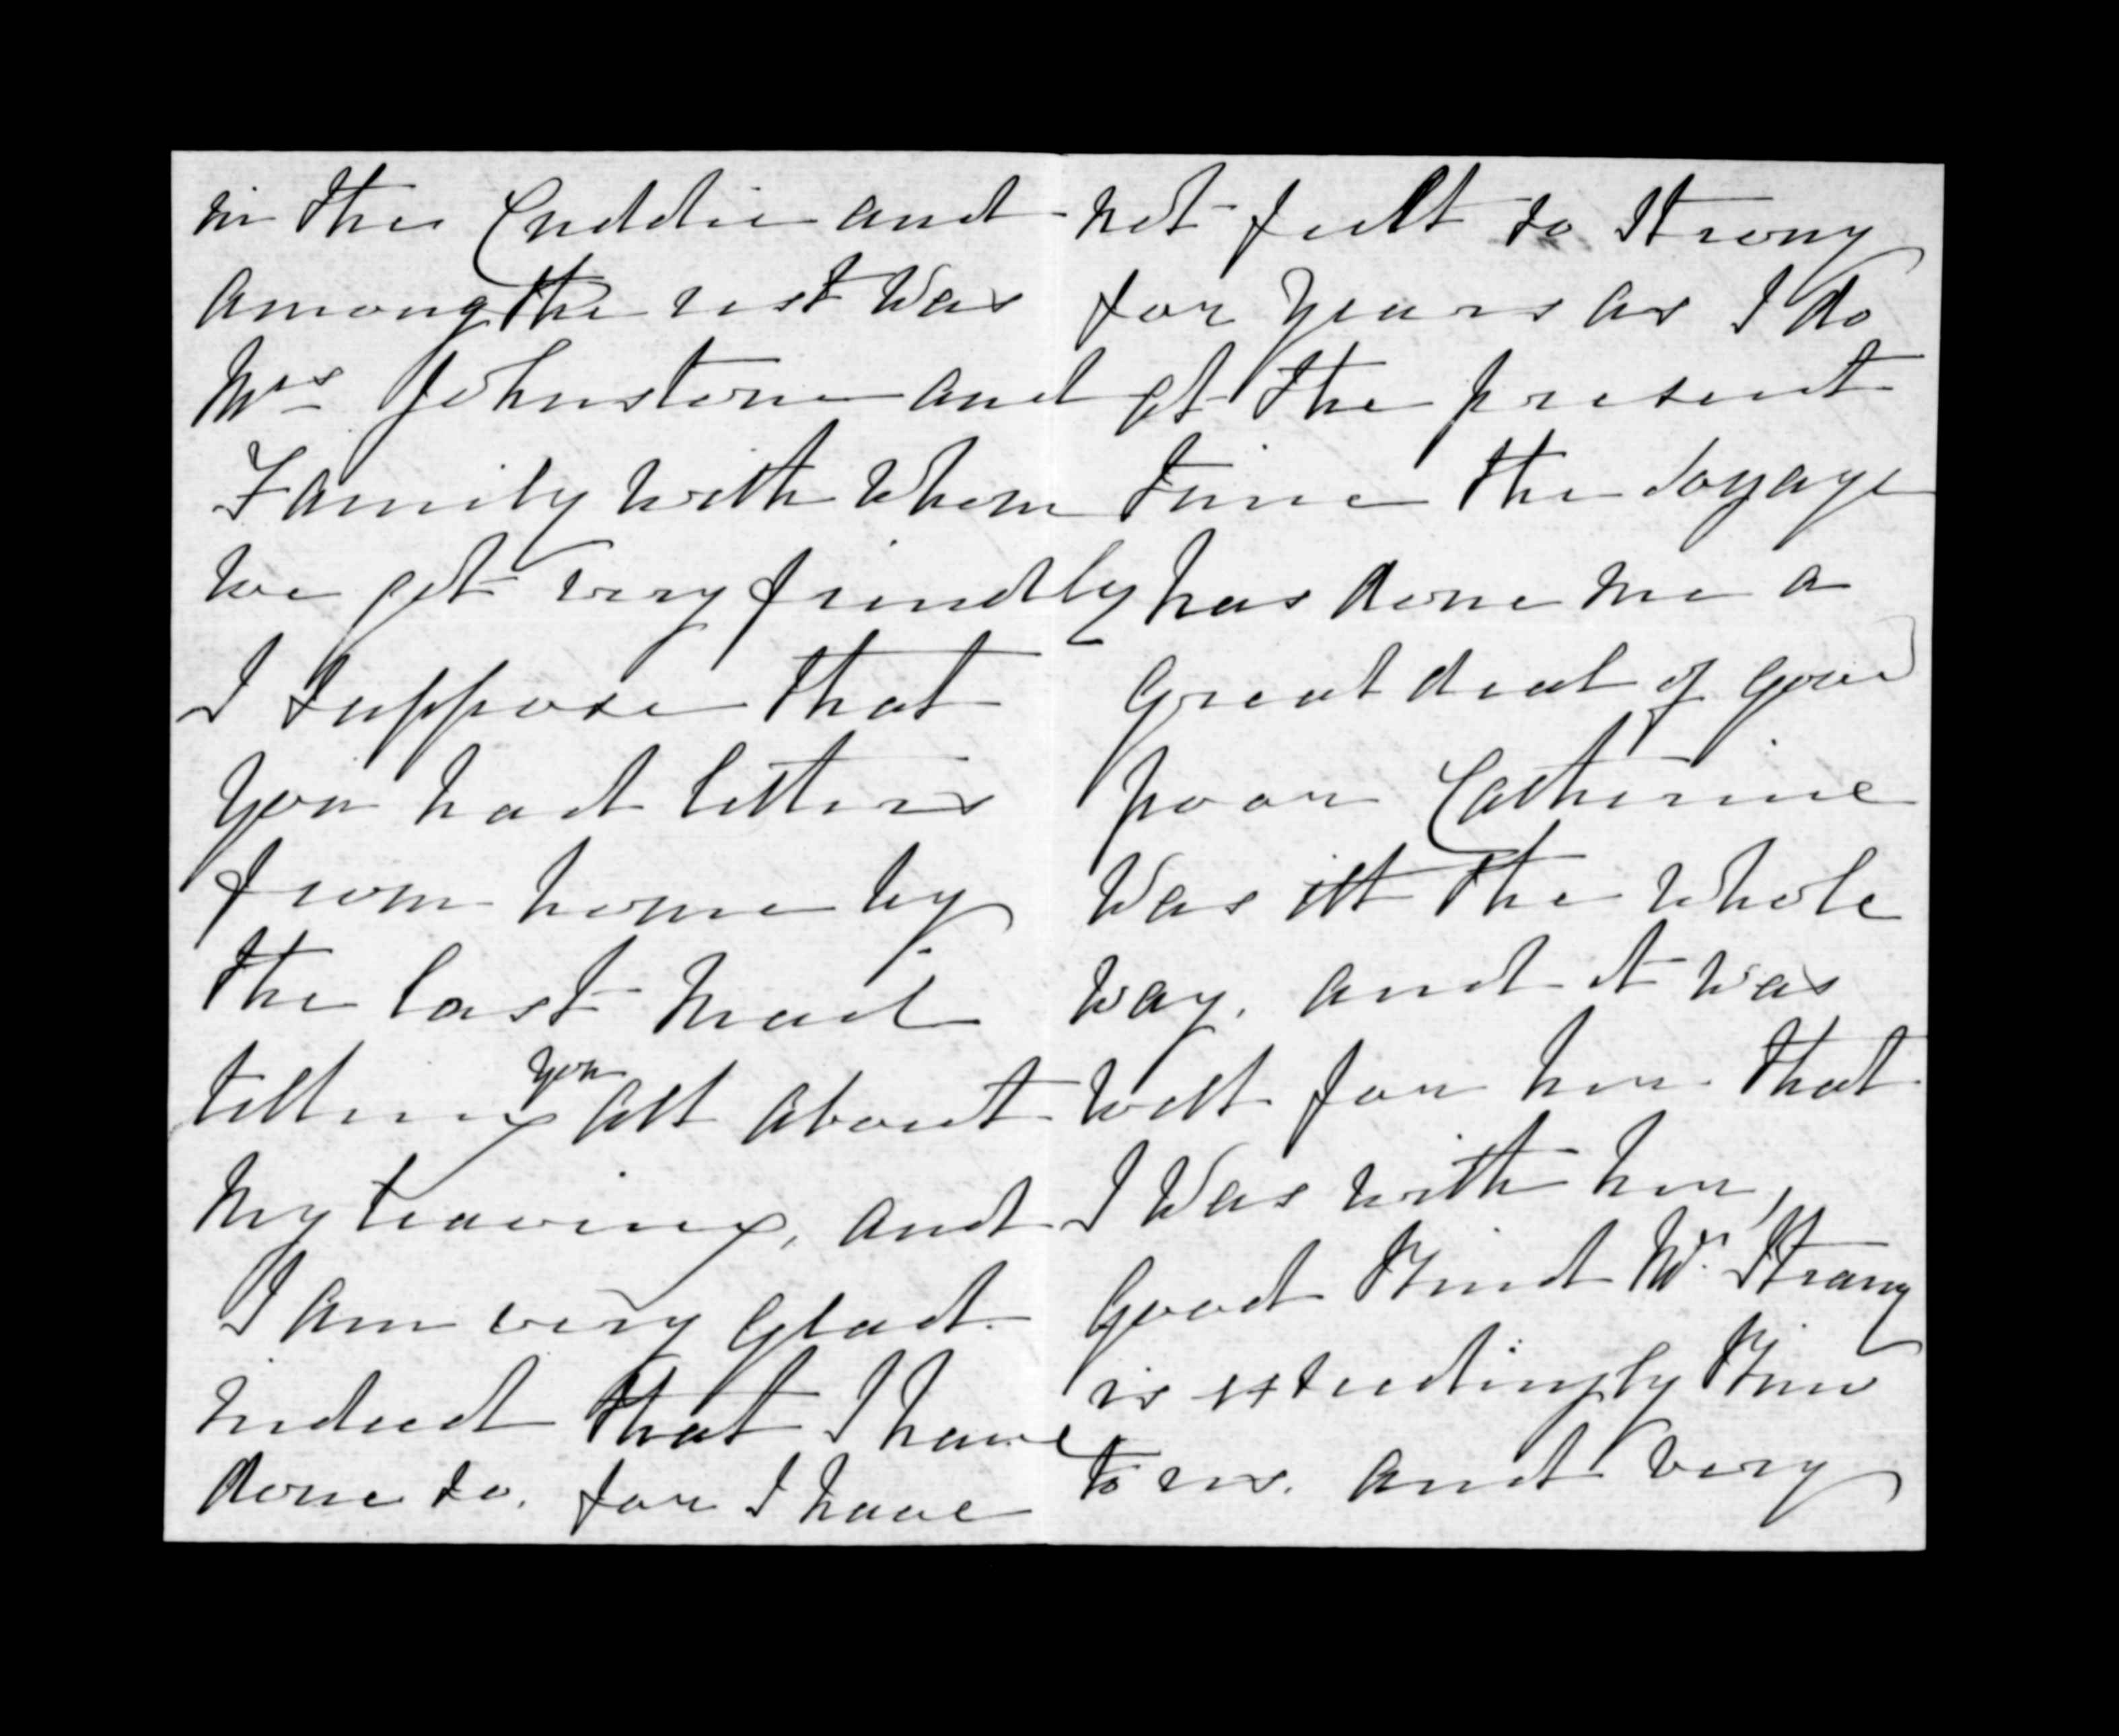 in the Cuddie and
among the rest was
Mrs Johnstone and
Family with whom
we got very friendly
I suppose that
you had letters
from home by
the last mail
telling you all about
my leaving, and
I am very glad
indeed that I have
done so. for I have
not feelt so strong
for years as I do
at the present
time the voyage
has done me a
great deal of good
poor Catherine
was ill the whole
way. and it was
well for her that
I was with her,
Good kind Mr. Strang
is exceedingly kind
to us. and very